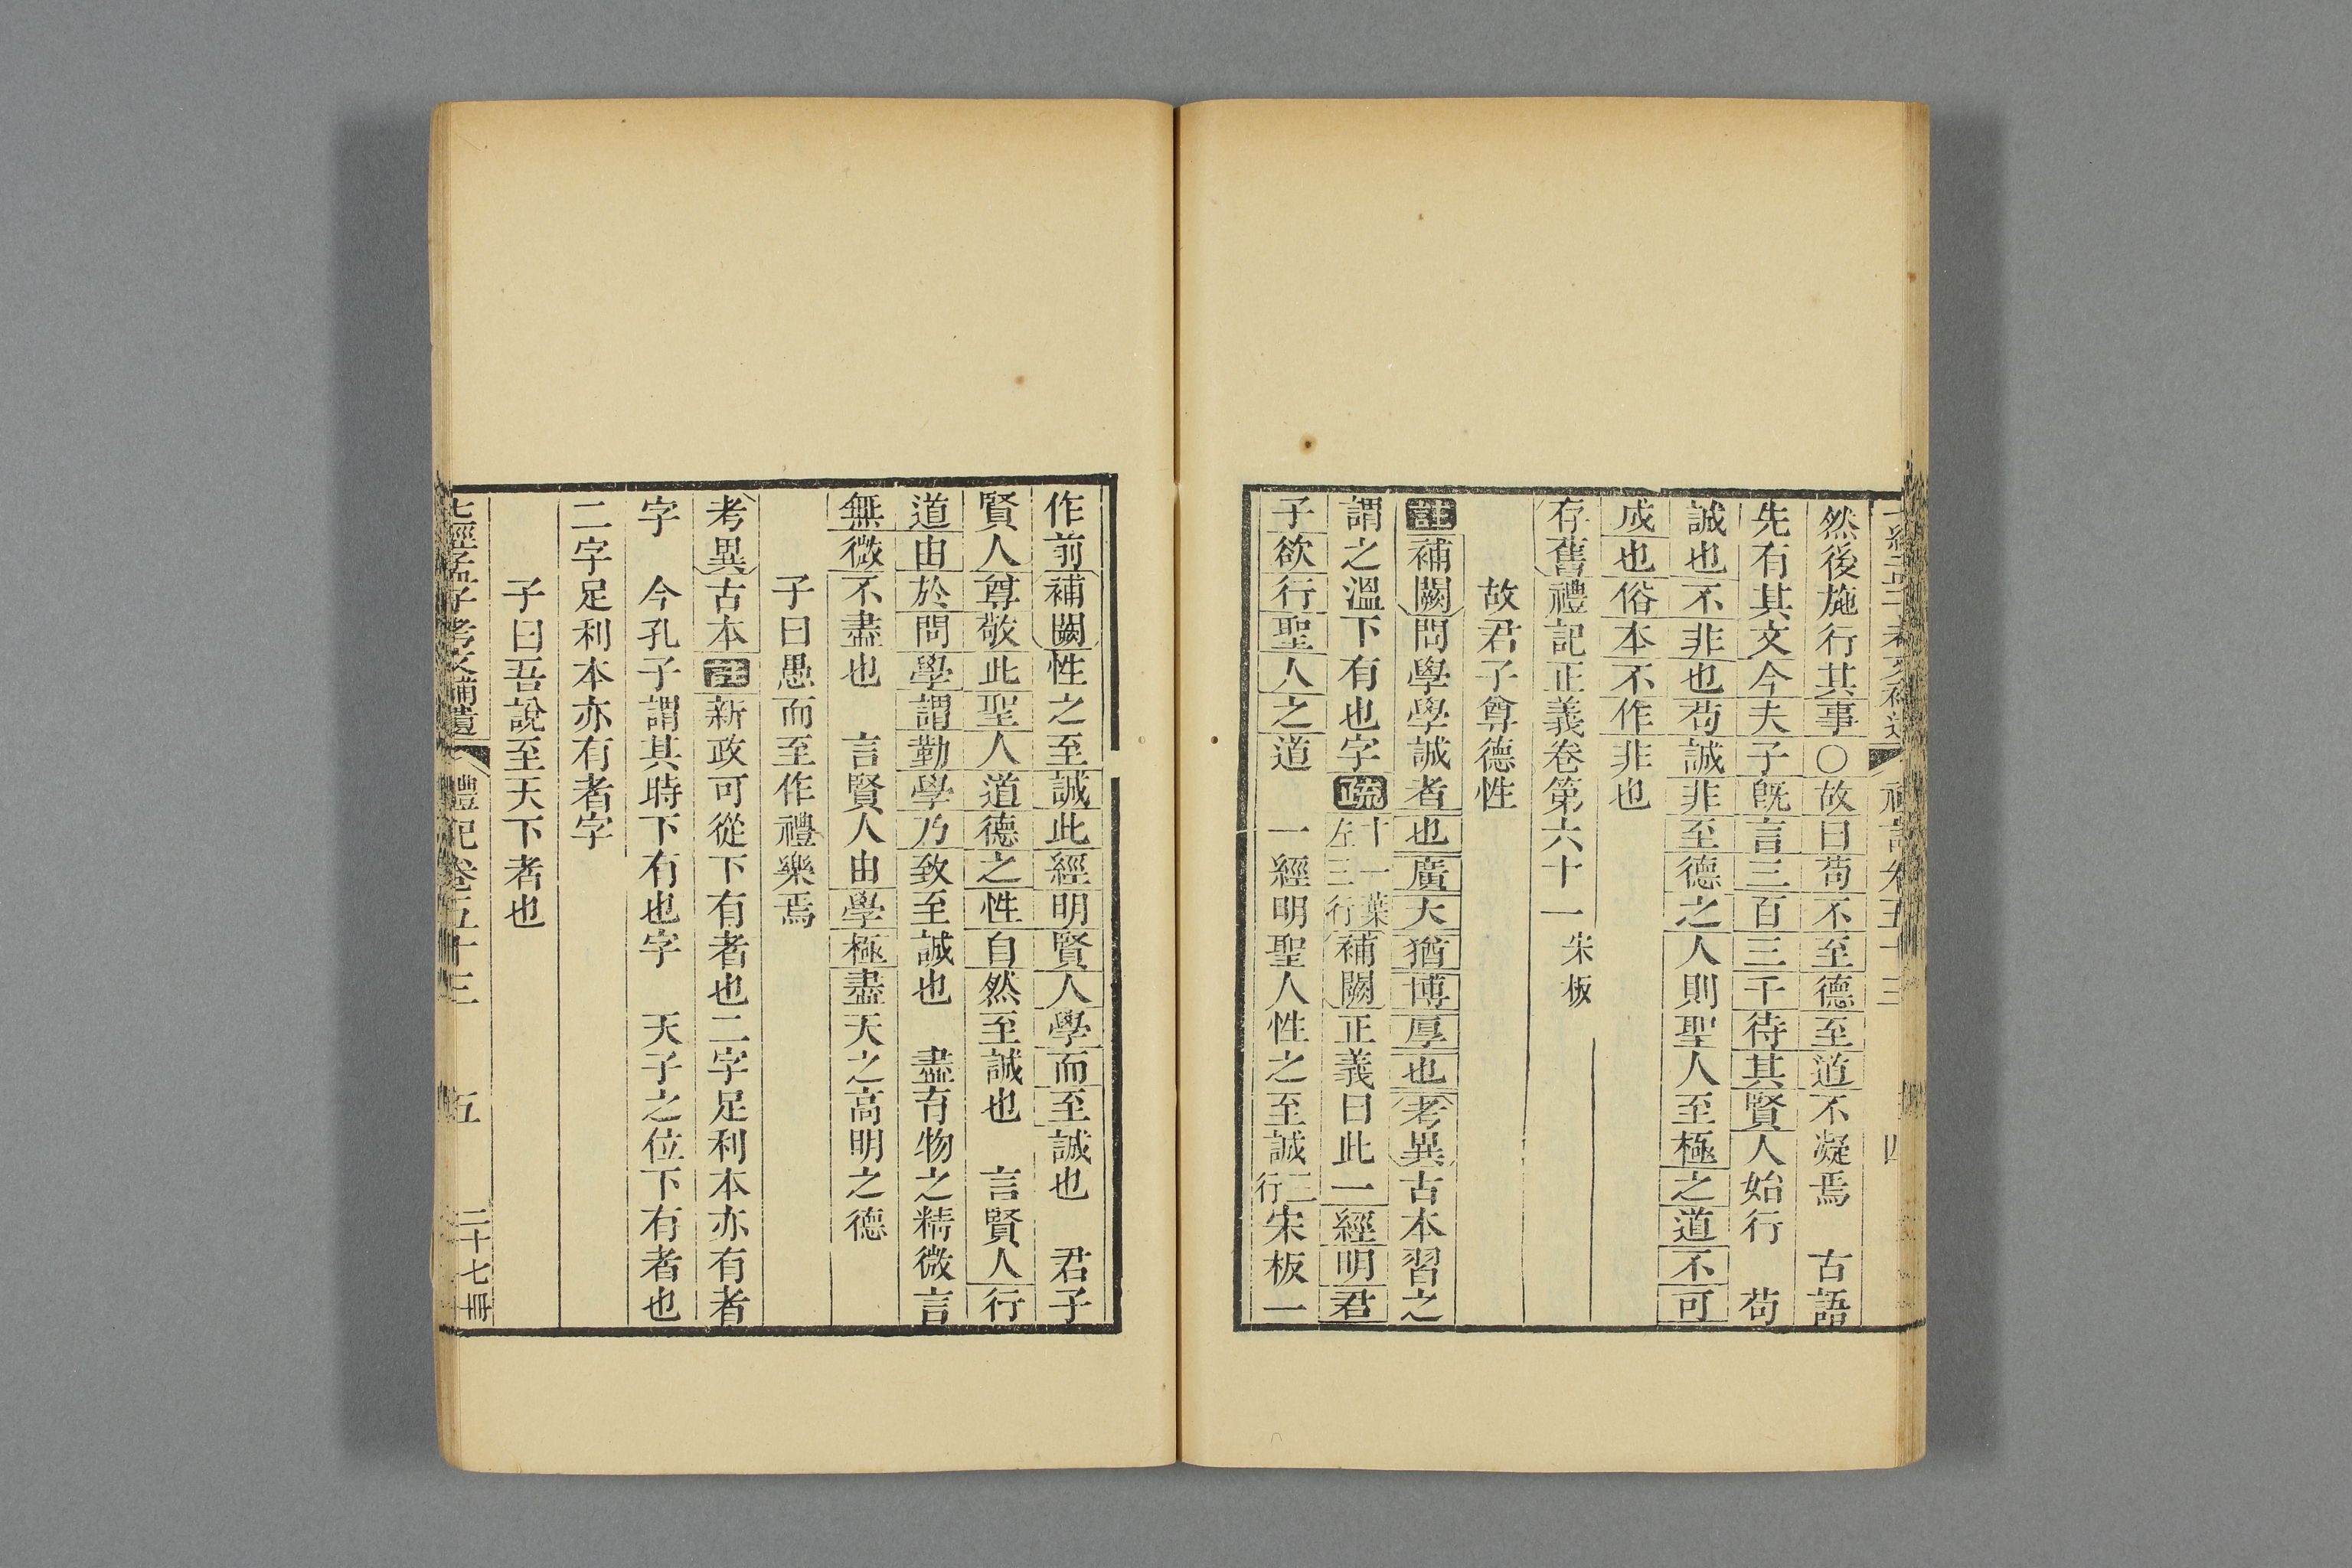 然後施行其事〇故曰苟不至德至道不凝焉　古語
先有其文今夫子既言三百三千待其賢人始行　苟
誠也不非也苟誠非至德之人則聖人至極之道不可
成也俗本不作非也
存舊禮記正義卷第六十一宋板
故君子尊德性
註補闕問學學誠者也廣大猶博厚也考異古本習之
謂之溫下有也字疏十一葉左三行補闕正義曰此一經明君
子欲行聖人之道　一經明聖人性之至誠二行宋板一
作前補闕性之至誠此經明賢人學而至誠也　君子
賢人尊敬此聖人道德之性自然至誠也　言賢人行
道由於問學謂勤學乃致至誠也　盡有物之精微言
無微不盡也　言賢人由學極盡天之高明之德
子曰愚而至作禮樂焉
考異古本註新政可從下有者也二字足利本亦有者
字　今孔子謂其時下有也字　天子之位下有者也
二字足利本亦有者字
子曰吾說至天下者也
七經孟子考文補遺　禮記卷五十三　五　二十七